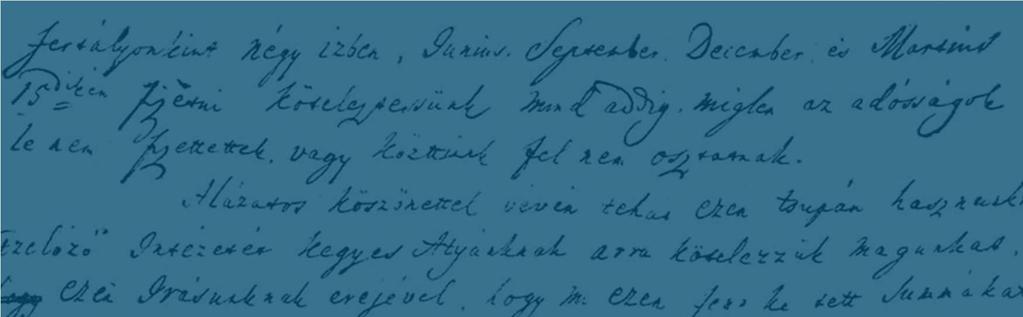 fertályonként négy izben, Junius. September. December. és Martius
15dikén fizetni köteleztessünk mind addig, miglen az adósságok
le nem fizettettek, vagy köztünk fel nem osztatnak.
Alázatos köszönettel vévén tehát ezen tsupán hasznunk
tzélözö Intézetét kegyes Atyánknak arra kötelezzük magunkat,
hogy ezen Irásunknak erejével, hogy mi ezen fent ki tett Summákat